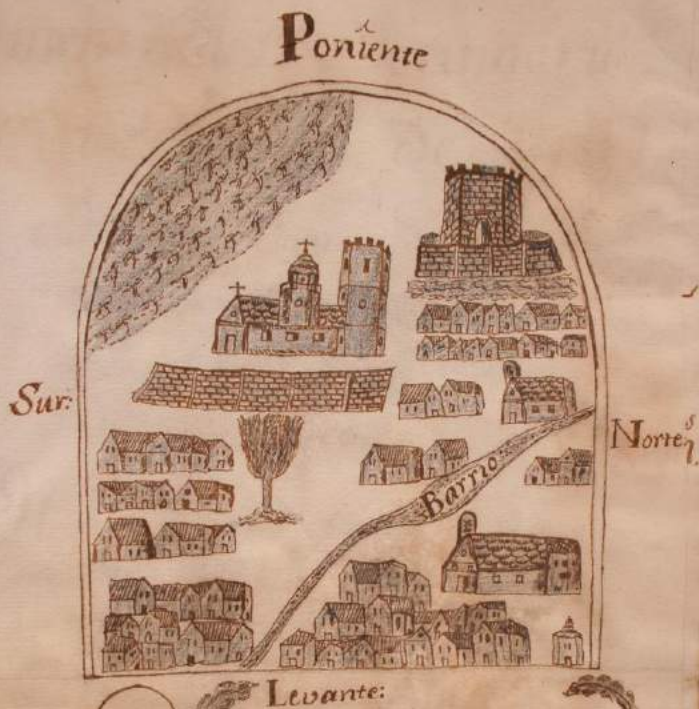 Poniente
Sur:
Norte
Barrio
Levante: